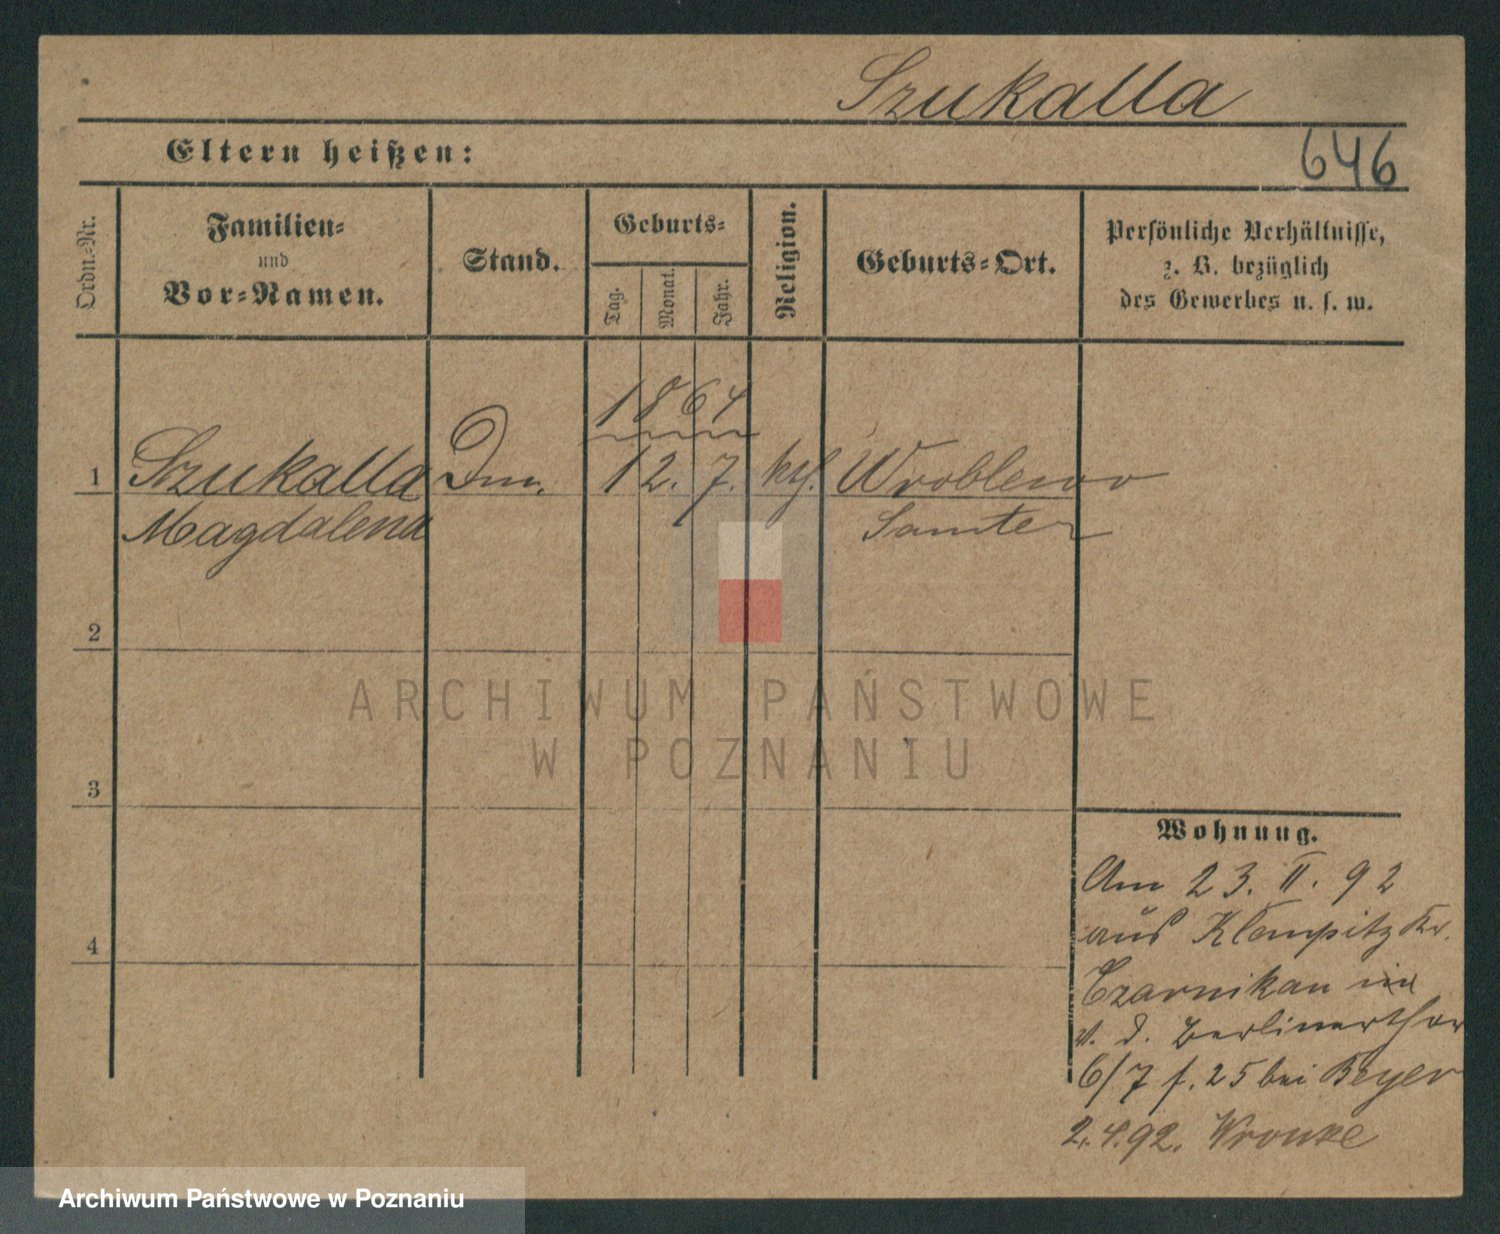 Szukalla
Eltern heißen:
646
Ordn.-Nr.
Familien-
und
Vor-Namen.
Stand.
Geburts-
Tag.
Monat.
Jahr.
Religion.
Geburts-Ort.
Persönliche Verhältnisse,
z. B. bezüglich
des Gewerbes u. s. w.
1864
1 Szukalla 12. 7. kth. Wroblewo
Magdalena Samter
2
ARCHIWUM PAŃSTWOWE
W POZNANIU
3
4
Wohnung.
Am 23. II. 92
aus Klempitz Kr.
Czarnikau
v. d. Berlinerthor
6/7 f. 25 bei Beyer
2.4.92. Wronke
Archiwum Państwowe w Poznaniu